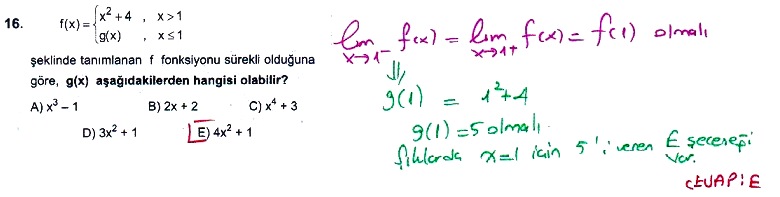 16. f(x) = { x² + 4 , x > 1
g(x) , x ≤ 1
şeklinde tanımlanan f fonksiyonu sürekli olduğuna
göre, g(x) aşağıdakilerden hangisi olabilir?
A) x³ − 1 B) 2x + 2 C) x⁴ + 3
D) 3x² + 1 E) 4x² + 1
lim x→1⁻ f(x) = lim x→1⁺ f(x) = f(1) olmalı
⇓
g(1) = 1² + 4
g(1) = 5 olmalı.
Şıklarda x=1 için 5'i veren E seçeneği
var.
CEVAP: E